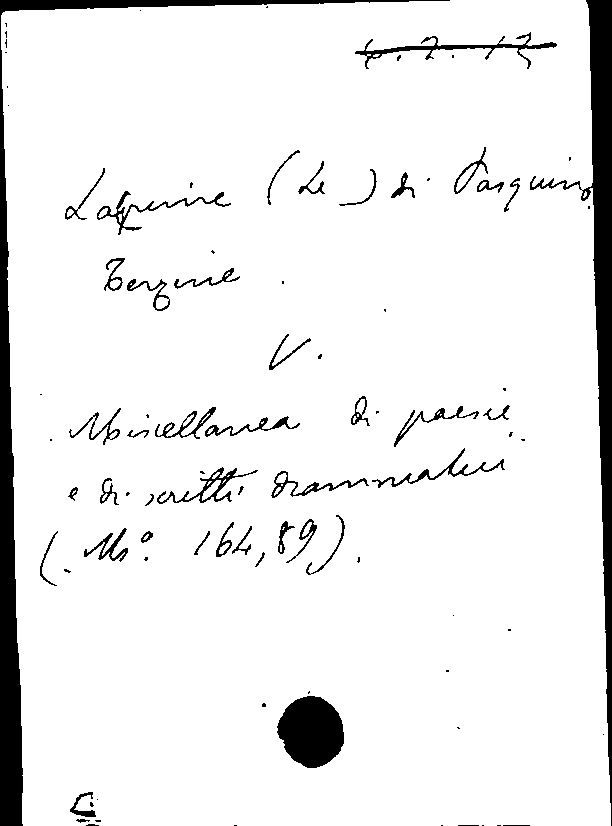 4. 2. 12
Lagrime (Le) di Pasquino
Terzine.
V.
Miscellanea di poesie
e di scritti drammatici
(Msº. 164,89).
C